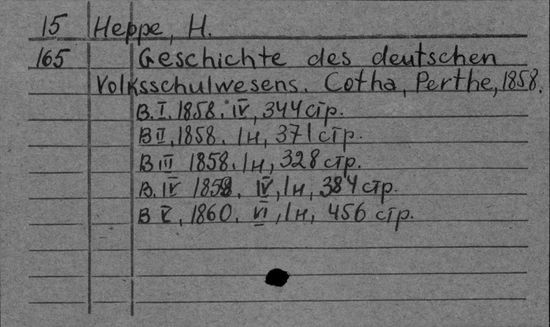 15 Heppe, H.
165 Geschichte des deutschen
Volksschulwesens. Cotha, Perthe, 1858.
B. I. 1858. IV, 344 стр.
B II, 1858. Iн, 371 стр.
B III 1858. Iн, 328 стр.
B. IV 1859. IV, Iн, 384 стр.
B V, 1860. VI, Iн, 456 стр.